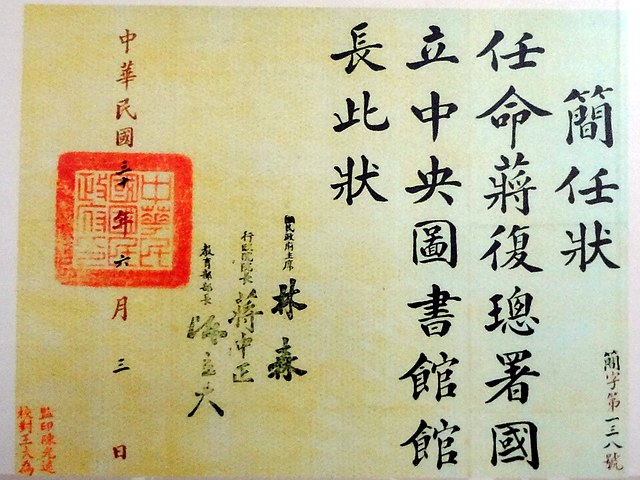 簡任狀
任命蔣復璁署國
立中央圖書館館
長此狀
簡字第一三八號
國民政府主席 林森
行政院院長 蔣中正
教育部部長 陳立夫
中華民國三十年六月三日
中華民國國民政府之印
監印陳光遠
校對王大為